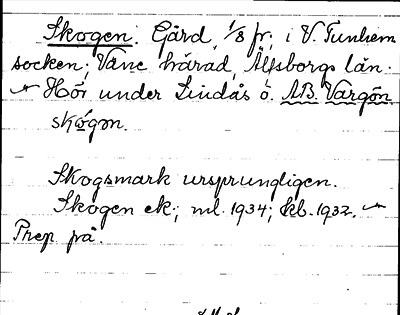 Skogen. Gård, 1/8 fr, i V. Tunhem
socken; Väne härad, Älfsborgs län.
Hör under Lindås o. AB. Vargön.
skógən.
Skogsmark ursprungligen.
Skogen ek; ml. 1934; kb. 1932.
Prep. på.